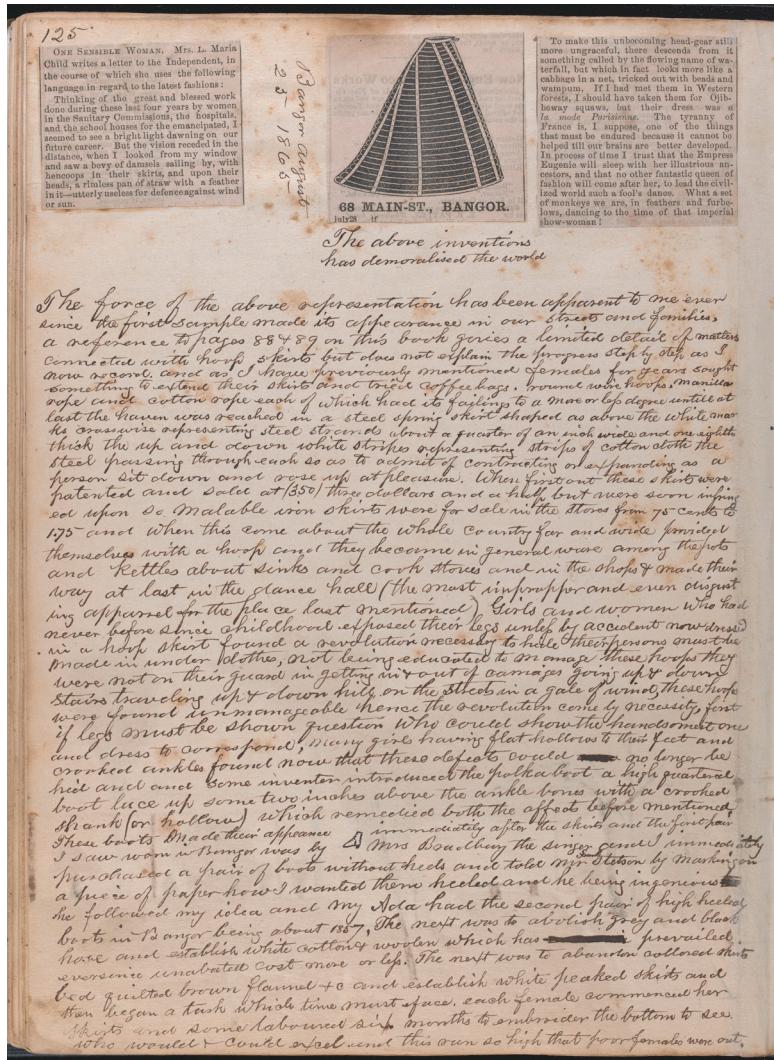 125
ONE SENSIBLE WOMAN. Mrs. L. Maria
Child writes a letter to the Independent, in
the course of which she uses the following
language in regard to the latest fashions:
Thinking of the great and blessed work
done during these last four years by women
in the Sanitary Commissions, the hospitals,
and the school houses for the emancipated, I
seemed to see a bright light dawning on our
future career. But the vision receded in the
distance, when I looked from my window
and saw a bevy of damsels sailing by, with
hencoops in their skirts, and upon their
heads, a rimless pan of straw with a feather
in it—utterly useless for defence against wind
or sun.
Bangor August
25 1865
68 MAIN-ST., BANGOR.
july28 tf
To make this unbecoming head-gear still
more ungraceful, there descends from it
something called by the flowing name of wa-
terfall, but which in fact looks more like a
cabbage in a net, tricked out with beads and
wampum. If I had met them in Western
forests, I should have taken them for Ojib-
beway squaws, but their dress was a
la mode Parisienne. The tyranny of
France is, I suppose, one of the things
that must be endured because it cannot be
helped till our brains are better developed.
In process of time I trust that the Empress
Eugenie will sleep with her illustrious an-
cestors, and that no other fantastic queen of
fashion will come after her, to lead the civil-
ized world such a fool's dance. What a set
of monkeys we are, in feathers and furbe-
lows, dancing to the time of that imperial
show-woman!
The above inventions
has demoralised the world
The force of the above representation has been apparent to me ever
since the first sample made its appearance in our streets and families,
a reference to pages 88 & 89 on this book gives a limited detail of matters
connected with hoop skirts but does not explain the progress step by step as I
now record. and as I have previously mentioned females for years sought
something to extend their skirts and tried coffee bags. round wire hoops, manilla
rope and cotton rope each of which had its failings to a more or less degree untill at
last the haven was reached in a steel spring skirt shaped as above the white mar
ks crosswise representing steel strands about a quarter of an inch wide and one eighth
thick the up and down white stripes representing strips of cotton cloth the
steel passing through each so as to admit of contracting or expanding as a
person sit down and rose up at pleasure. When first out these skirts were
patented and sold at (3.50) three dollars and a half but were soon infring
ed upon so malable iron skirts were for sale in the stores from 75 cents to
1.75 and when this come about the whole county far and wide provided
themselves with a hoop and they became in general ware among the pots
and kettles about sinks and cook stoves and in the shops & made their
way at last in the dance hall (the most improper and even disgust
ing apparrel for the place last mentioned) Girls and women who had
never before since childhood exposed their legs unless by accident now dressed
in a hoop skirt found a revolution necessary to hide their persons must be
made in under clothes, not being educated to manage these hoops they
were not on their guard in getting in & out of carriages going up & down
stairs traveling up & down hill, on the streets in a gale of wind, these hoops
were found unmanageable hence the revolution come by necessity, first
if legs must be shown question who could show the handsomest one
and dress to correspond, many girls having flat hollows to their feet and
crooked ankles found now that these defeats could no longer be
hid and and some inventer introduced the polka boot a high quartered
boot lace up some two inches above the ankle bones with a crooked
shank (or hollow) which remedied both the affects before mentioned
These boots made their appeance immediately after the skirts and the first pair
I saw worn in Bangor was by Mrs Bradbury the singer and I immediately
purchased a pair of boots without heels and told Mr Stetson by marking on
a piece of paper how I wanted them heeled and he being ingenious
he followed my idea and my Ada had the second pair of high heeled
boots in Bangor being about 1857, The next was to abolish grey and black
hose and establish white cotton & woolen which has prevailed
eversince unabated cost more or less. The next was to abandon collored skirts
bed quilted brown flannel &c and establish white peaked skirts and
then began a task which time must efface. each female commenced her
skirts and some laboured six months to embroider the bottom to see
who would & could excel and this run so high that poor females were out,